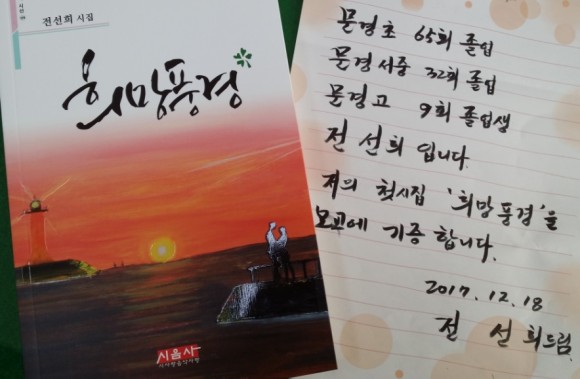 전선희 시집
희망풍경
시음사
문경초 65회 졸업
문경서중 32회 졸업
문경고 9회 졸업생
전선희 입니다.
저의 첫시집 '희망풍경'을
모교에 기증합니다.
2017.12.18
전선희드림